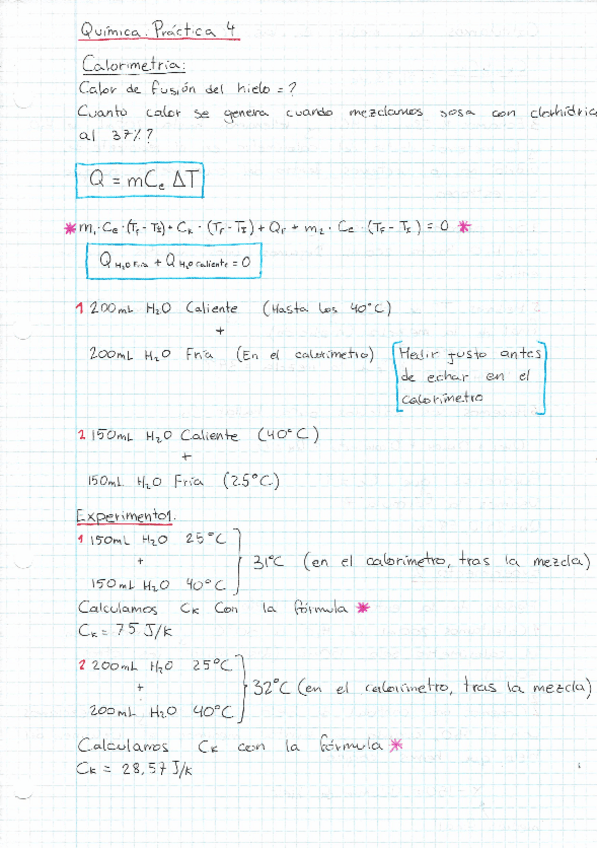 Química. Práctica 4
Calorimetría:
Calor de fusión del hielo = ?
Cuanto calor se genera cuando mezclamos sosa con clorhídrico
al 37%?
Q = mCe ΔT
* m₁·Ce·(TF-TI)+CK·(TF-TI)+Qr+m2·Ce·(TF-TI)=0 *
Q H2O Fría + Q H2O caliente = 0
1 200mL H2O Caliente (Hasta los 40°C)
+
200mL H2O Fría (En el calorímetro) [Medir justo antes
de echar en el
calorímetro]
2 150mL H2O Caliente (40°C)
+
150mL H2O Fría (25°C)
Experimento1.
1 150mL H2O 25°C
+ } 31°C (en el calorímetro, tras la mezcla)
150mL H2O 40°C
Calculamos CK Con la fórmula *
CK = 75 J/K
2 200mL H2O 25°C
+ } 32°C (en el calorímetro, tras la mezcla)
200mL H2O 40°C
Calculamos CK con la fórmula *
CK = 28,57 J/K